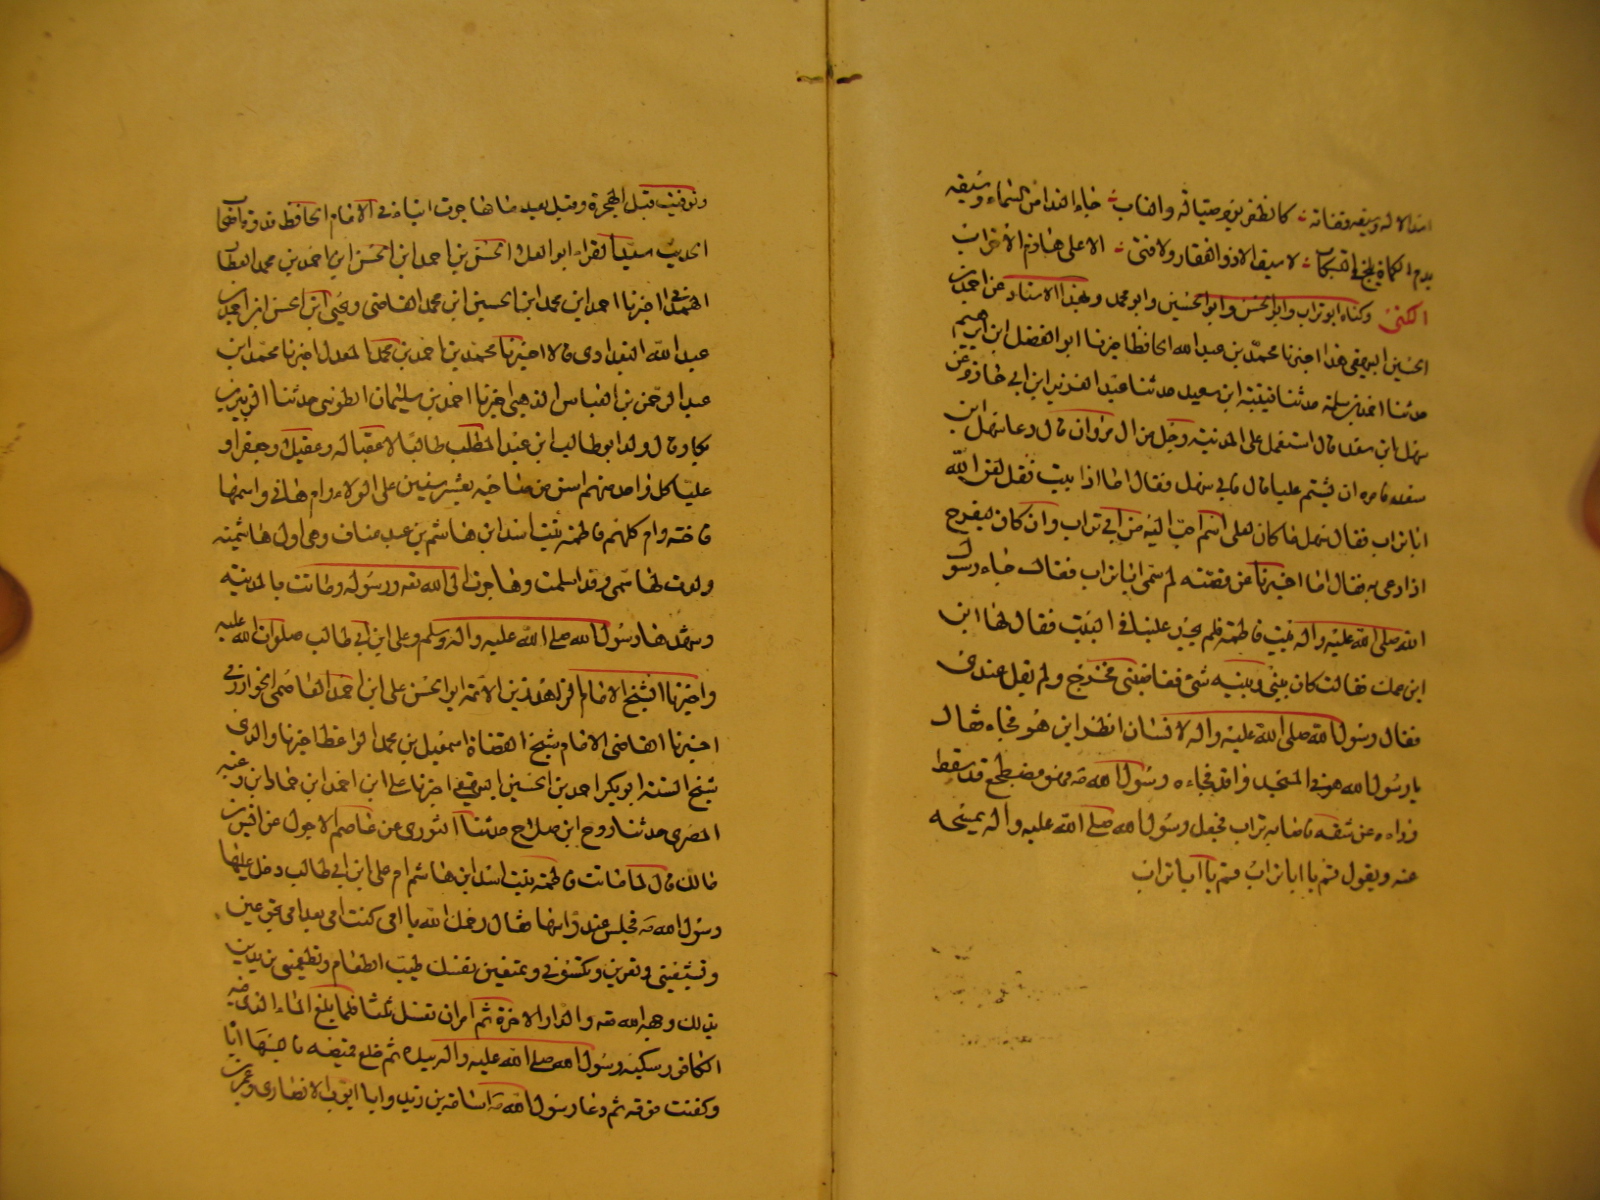 اسد الاله وسيفه وقناته كالظفر يوم صياله والناب جاء الندا من السماء وسيفه
بدم الكماة يلج في التسكاب لا سيف الا ذو الفقار ولا فتى الا علي هازم الاحزاب
الكنى وكناه ابو تراب وابو الحسن وابو الحسين وابو محمد وبهذا الاسناد عن احمد بن
الحسين البيهقي هذا اخبرنا محمد بن عبد الله الحافظ اخبرنا ابو الفضل ابن ابراهيم
حدثنا احمد بن سلمة حدثنا قتيبة ابن سعيد حدثنا عبد العزيز ابن ابي حازم عن
سهل ابن سعد قال استعمل على المدينة رجل من ال مروان قال دعا سهل ابن
سعد فامره ان يشتم عليا قال فابى سهل فقال اما اذا ابيت فقل لعن الله
ابا تراب فقال سهل ما كان لعلي اسم احب اليه من ابي تراب وان كان ليفرح
اذا دعي به فقال اما اخبرنا عن قصته لم سمي ابا تراب فقال جاء رسول
الله صلى الله عليه واله بيت فاطمة فلم يجد عليا في البيت فقال لها اين
ابن عمك فقالت كان بيني وبينه شئ فغاضبني فخرج ولم يقل عندي
فقال رسول الله صلى الله عليه واله لانسان انظر اين هو فجاء فقال
يا رسول الله هو في المسجد راقد فجاءه رسول الله صه وهو مضطجع قد سقط
رداءه عن شقه فاصابه تراب فجعل رسول الله صلى الله عليه واله يمسحه
عنه ويقول قم يا ابا تراب قم يا ابا تراب
وتوفيت قبل الهجرة وقيل بعيد ما هاجرت انباءني الامام الحافظ قدوة اصحاب
الحديث سيد القراء ابو العلاء الحسن بن احمد ابن الحسن ابن احمد بن محمد العطار
الهمداني اخبرنا احمد ابن محمد ابن الحسين ابن محمد القاضي ويحيى ابن الحسن ابن احمد بن
عبد الله البغدادي قالا اخبرنا محمد بن احمد بن محمد المعدل اخبرنا محمد ابن
عبد الرحمن بن العباس الذهبي اخبرنا احمد بن سليمان الطوسي حدثنا الزبير بن
بكار قال ولد ابو طالب ابن عبد المطلب طالبا لا عقب له وعقيلا وجعفرا و
عليا كل واحد منهم اسن من صاحبه بعشر سنين على الولاء وام هاني واسمها
فاختة وام كلهم فاطمة بنت اسد ابن هاشم بن عبد مناف وهي اول هاشمية
ولدت لهاشمي وقد اسلمت وهاجرت الى الله تعه ورسوله وماتت بالمدينة
وشهدها رسول الله صلى الله عليه واله وسلم وعلي ابن ابي طالب صلوات الله عليه
واخبرنا الشيخ الامام الزاهد زين الائمة ابو الحسن علي ابن احمد العاصمي الخوارزمي
اخبرنا القاضي الامام شيخ القضاة اسمعيل بن محمد الواعظ اخبرنا والدي
شيخ السنة ابو بكر احمد بن الحسين البيهقي اخبرنا علي ابن احمد ابن حماد ابن زغبه
المصري حدثنا روح ابن صلاح حدثنا الثوري عن عاصم الاحول عن انس بن
مالك قال لما ماتت فاطمة بنت اسد ابن هاشم ام علي ابن ابي طالب دخل عليها
رسول الله صه فجلس عند راسها فقال رحمك الله يا امي كنت امي بعد امي تجوعين
وتشبعيني وتعرين وتكسوني وتمنعين نفسك طيب الطعام وتطعميني تريدين
بذلك وجه الله تعه والدار الاخرة ثم امر ان تغسل ثلثا فلما بلغ الماء الذي فيه
الكافور سكبه رسول الله صلى الله عليه واله بيده ثم خلع قميصه فالبسها اياه
وكفنت فوقه ثم دعا رسول الله صه اسامة بن زيد وابا ايوب الانصاري وعمر بن